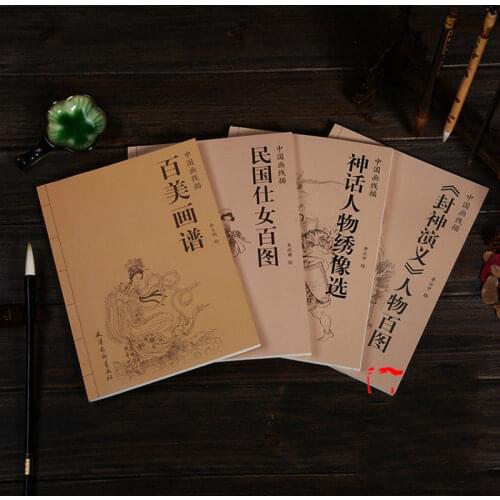 中国画线描
百美画谱
天津杨柳青画社
中国画线描
民国仕女百图
中国画线描
神话人物绣像选
中国画线描
《封神演义》人物百图